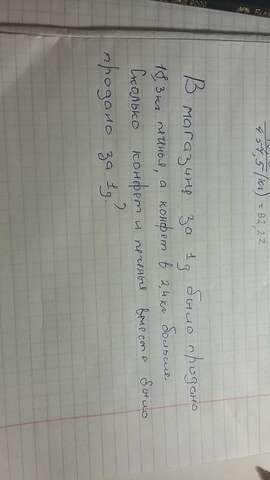 454,5 (кг) = 82,22
В магазине за 1д было продано
18,3кг печенья, а конфет в 2,4 кг больше.
Сколько конфет и печенья вместе было
продано за 1д?